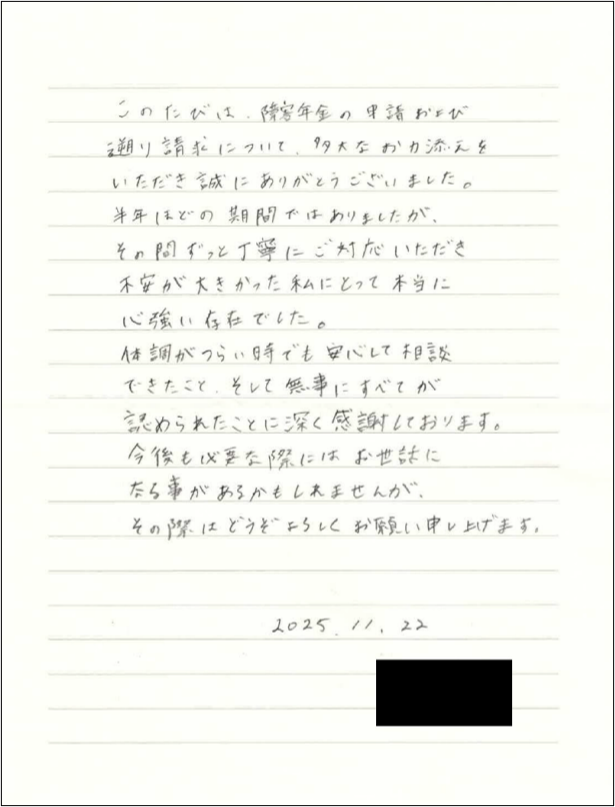 このたびは、障害年金の申請および
遡り請求について、多大なお力添えを
いただき誠にありがとうございました。
半年ほどの期間ではありましたが、
その間ずっと丁寧にご対応いただき
不安が大きかった私にとって本当に
心強い存在でした。
体調がつらい時でも安心して相談
できたこと、そして無事にすべてが
認められたことに深く感謝しております。
今後も必要な際にはお世話に
なる事があるかもしれませんが、
その際はどうぞよろしくお願い申し上げます。
2025.11.22